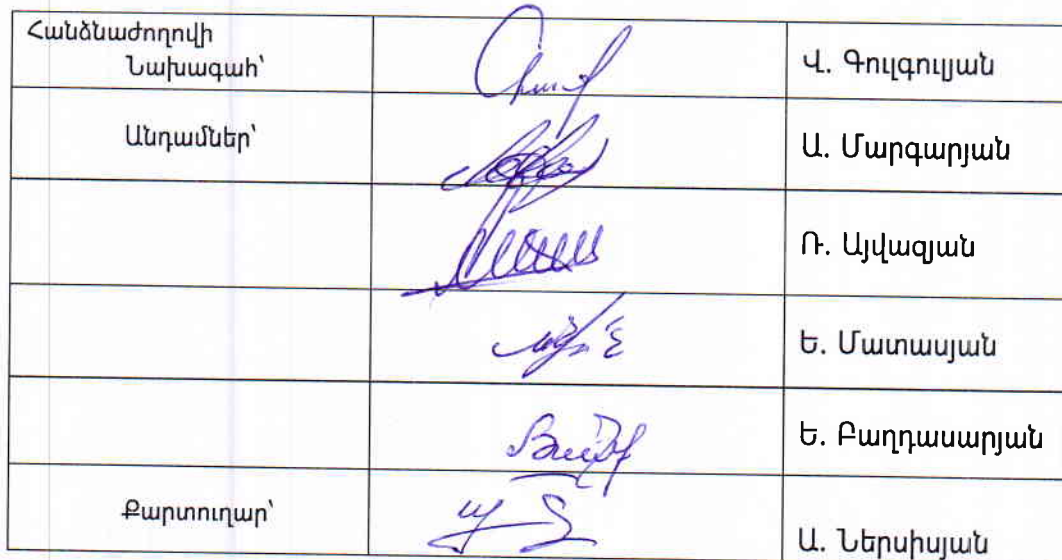 Հանձնաժողովի
Նախագահ՝
Վ. Գուլգուլյան
Անդամներ՝
Ա. Մարգարյան
Ռ. Այվազյան
Ե. Մատասյան
Ե. Բաղդասարյան
Քարտուղար՝
Ա. Ներսիսյան